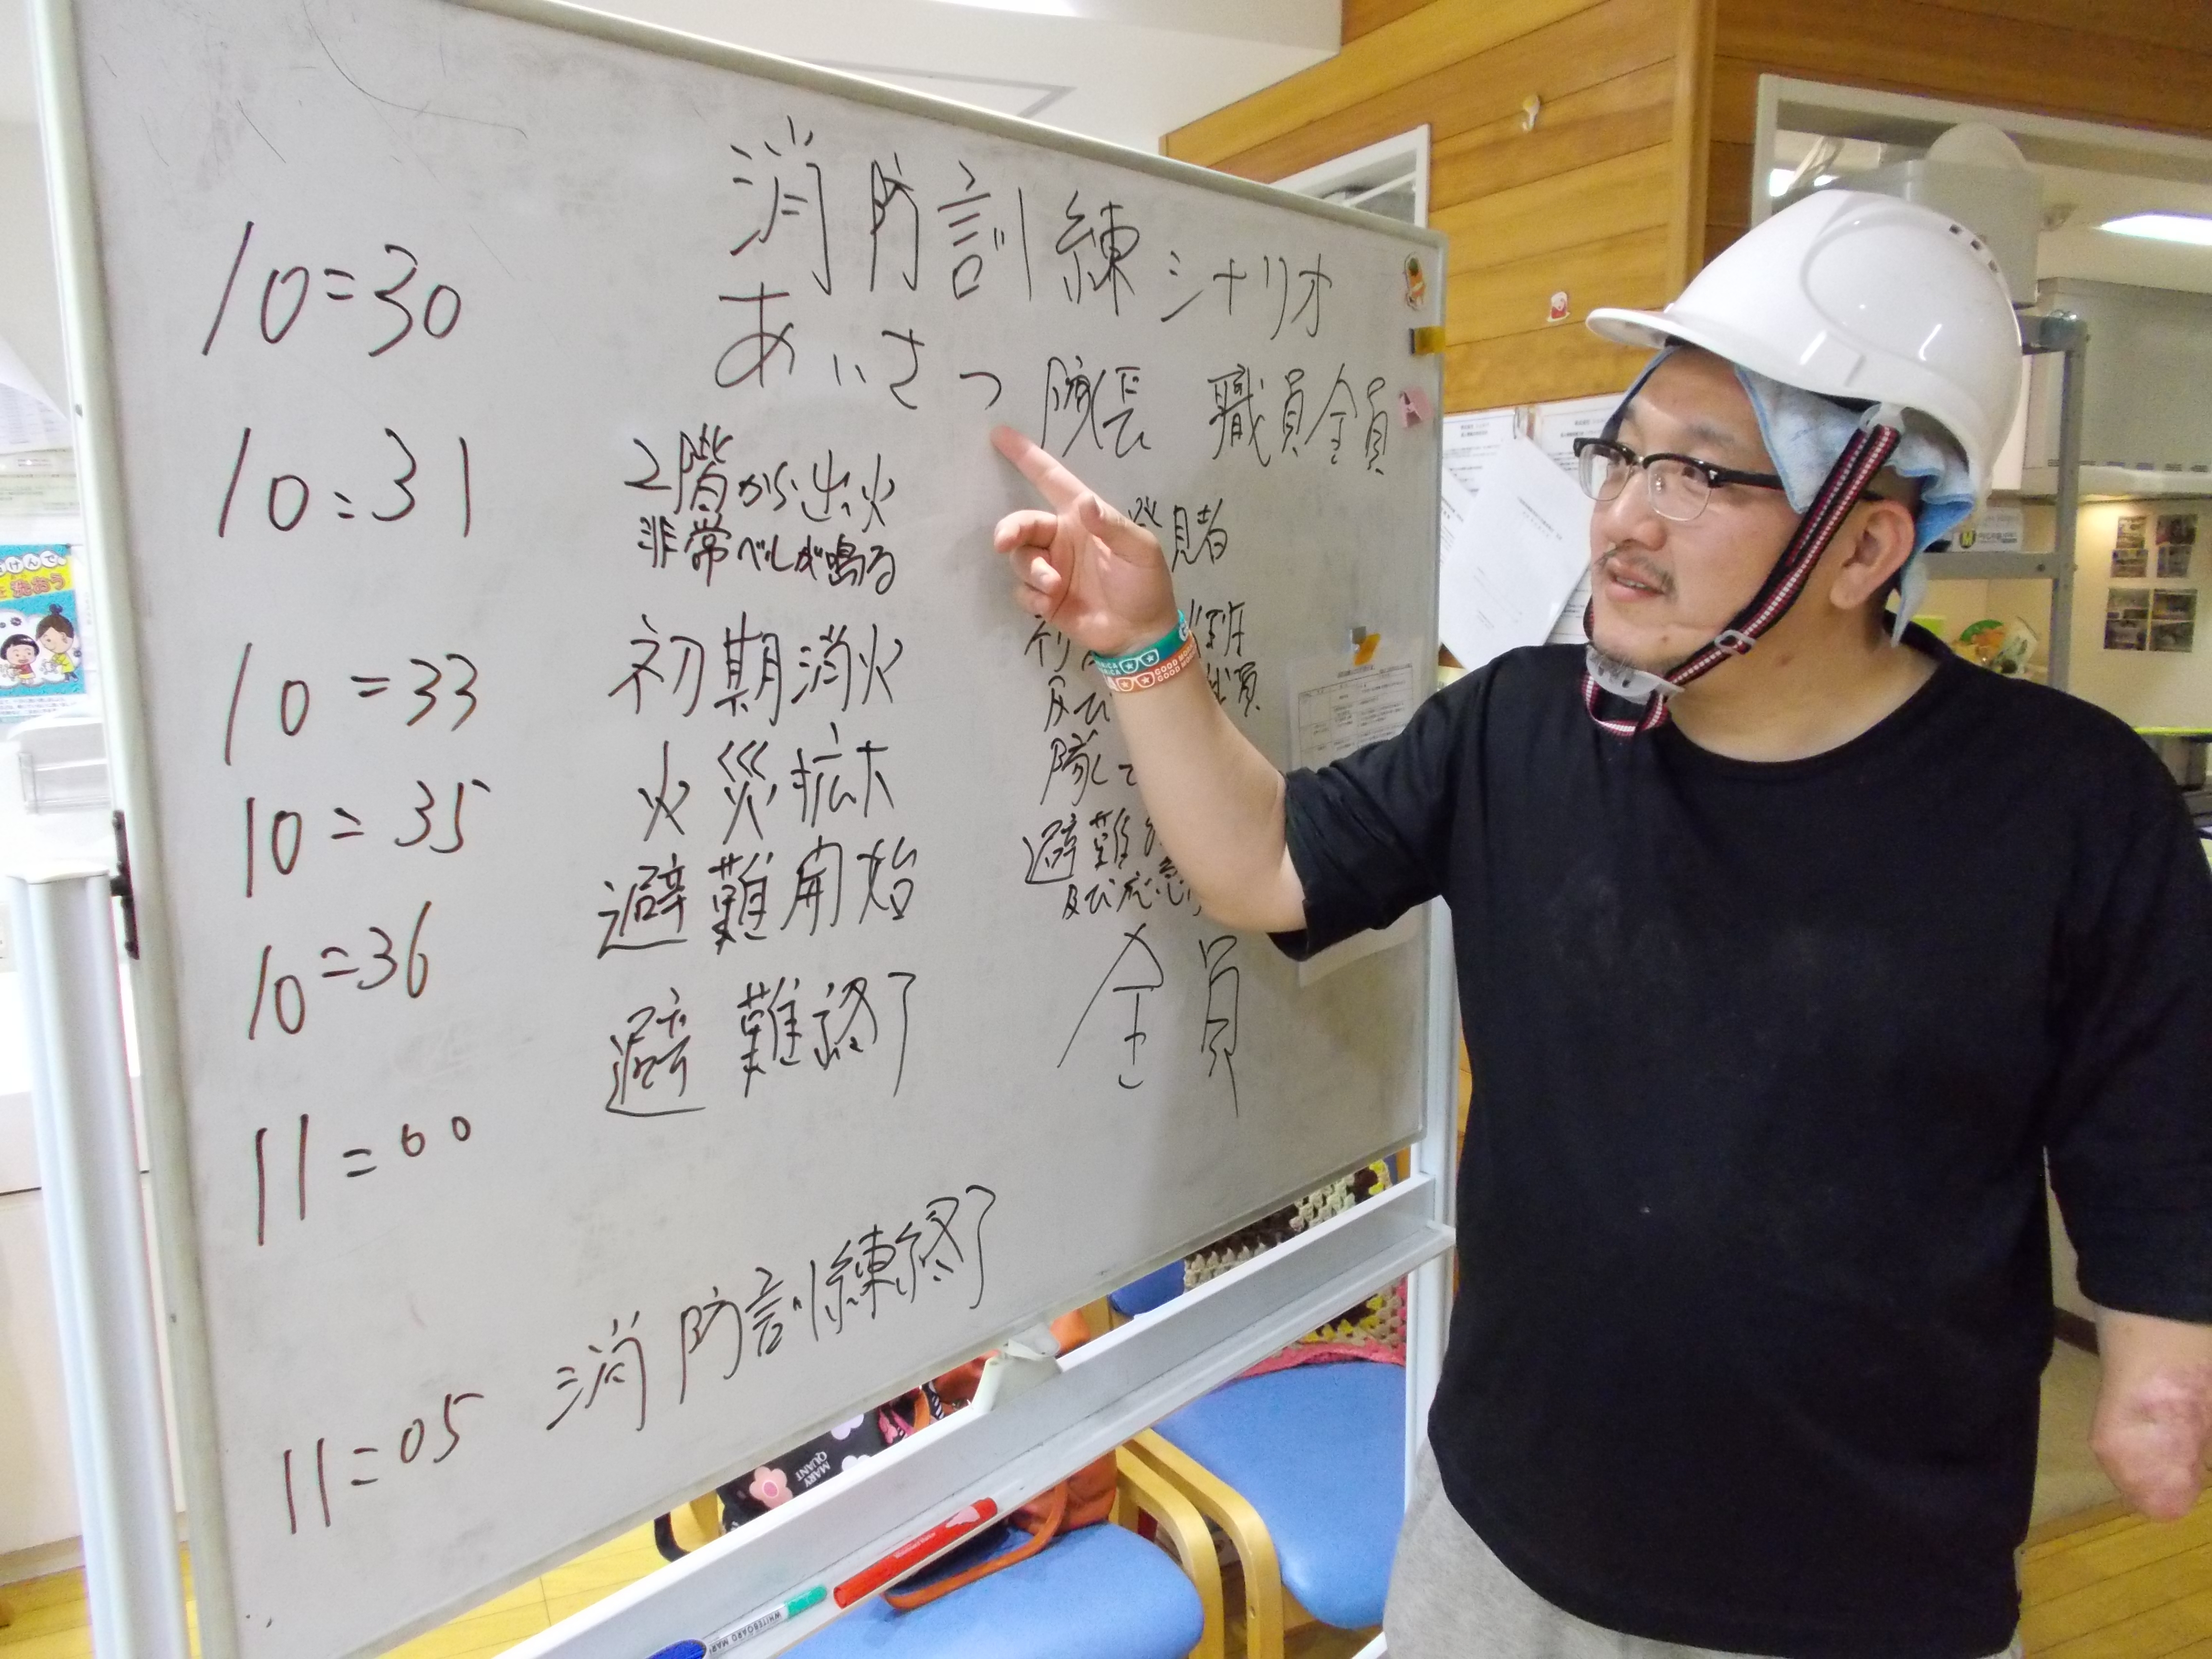 消防訓練シナリオ
10=30 あいさつ 院長 職員全員
10:31 2階から出火
非常ベルが鳴る
10=33 初期消火
10=35 火災拡大
10=36 避難開始 避難
及び応急
11=00 避難終了 全員
11=05 消防訓練終了
MARY
QUANT
WHITEBOARD MAR
GOOD